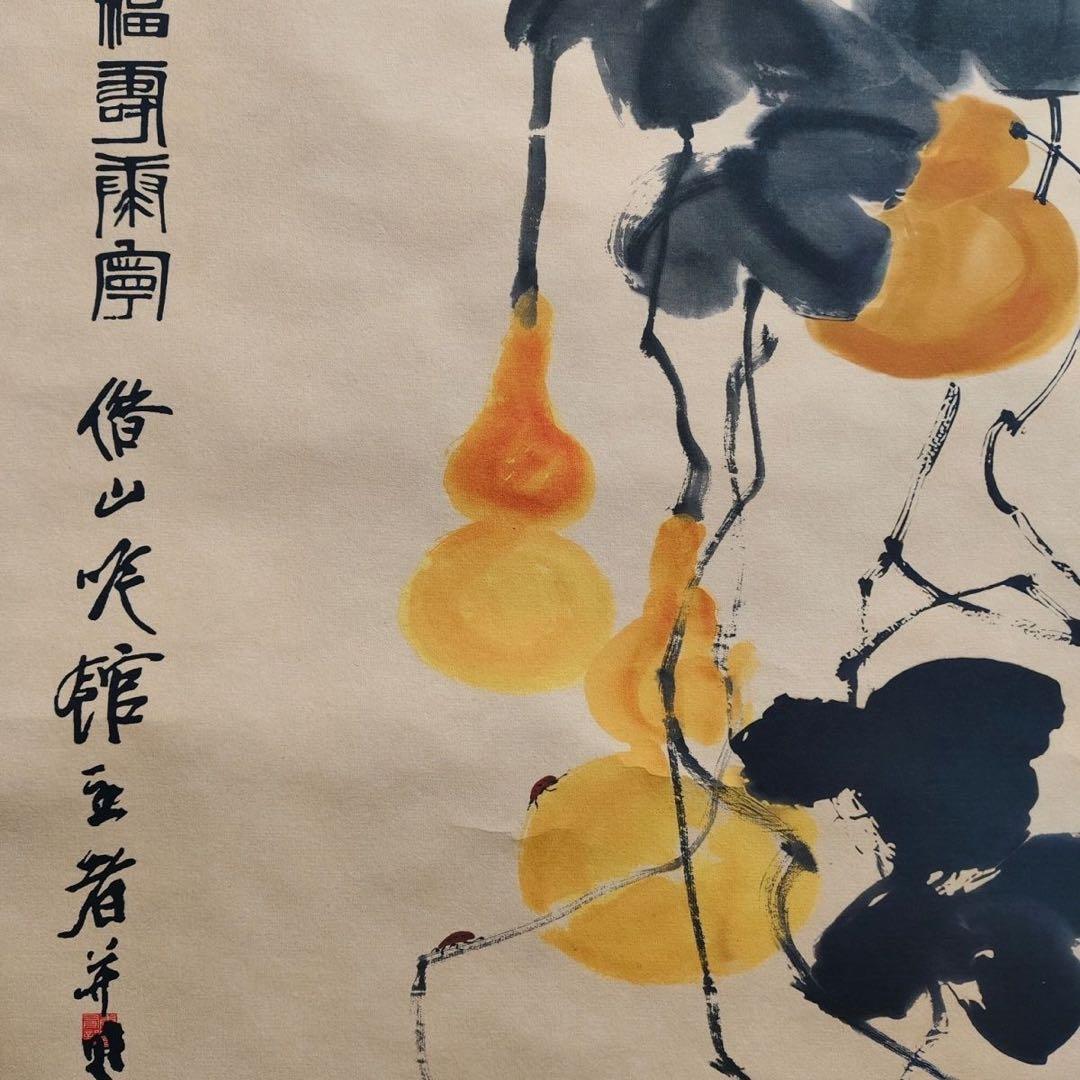 福壽康寧 借山吟館主者並